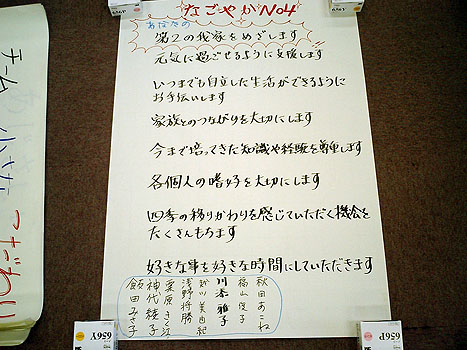 なごやかNo4
あなたの
第2の我家をめざします
元気に過ごせるように支援します
いつまでも自立した生活ができるように
お手伝いします
家族とのつながりを大切にします
今まで培ってきた知識や経験を尊重します
各個人の嗜好を大切にします
四季の移りかわりを感じていただく機会を
たくさんもちます
好きな事を好きな時間にしていただきます
秋田あこね
福山俊子
川添雅子
越川美由紀
浅野将勝
栗原
神代綾子
飯田みさ子
チーム
小さな
こだわり
656Y
656P